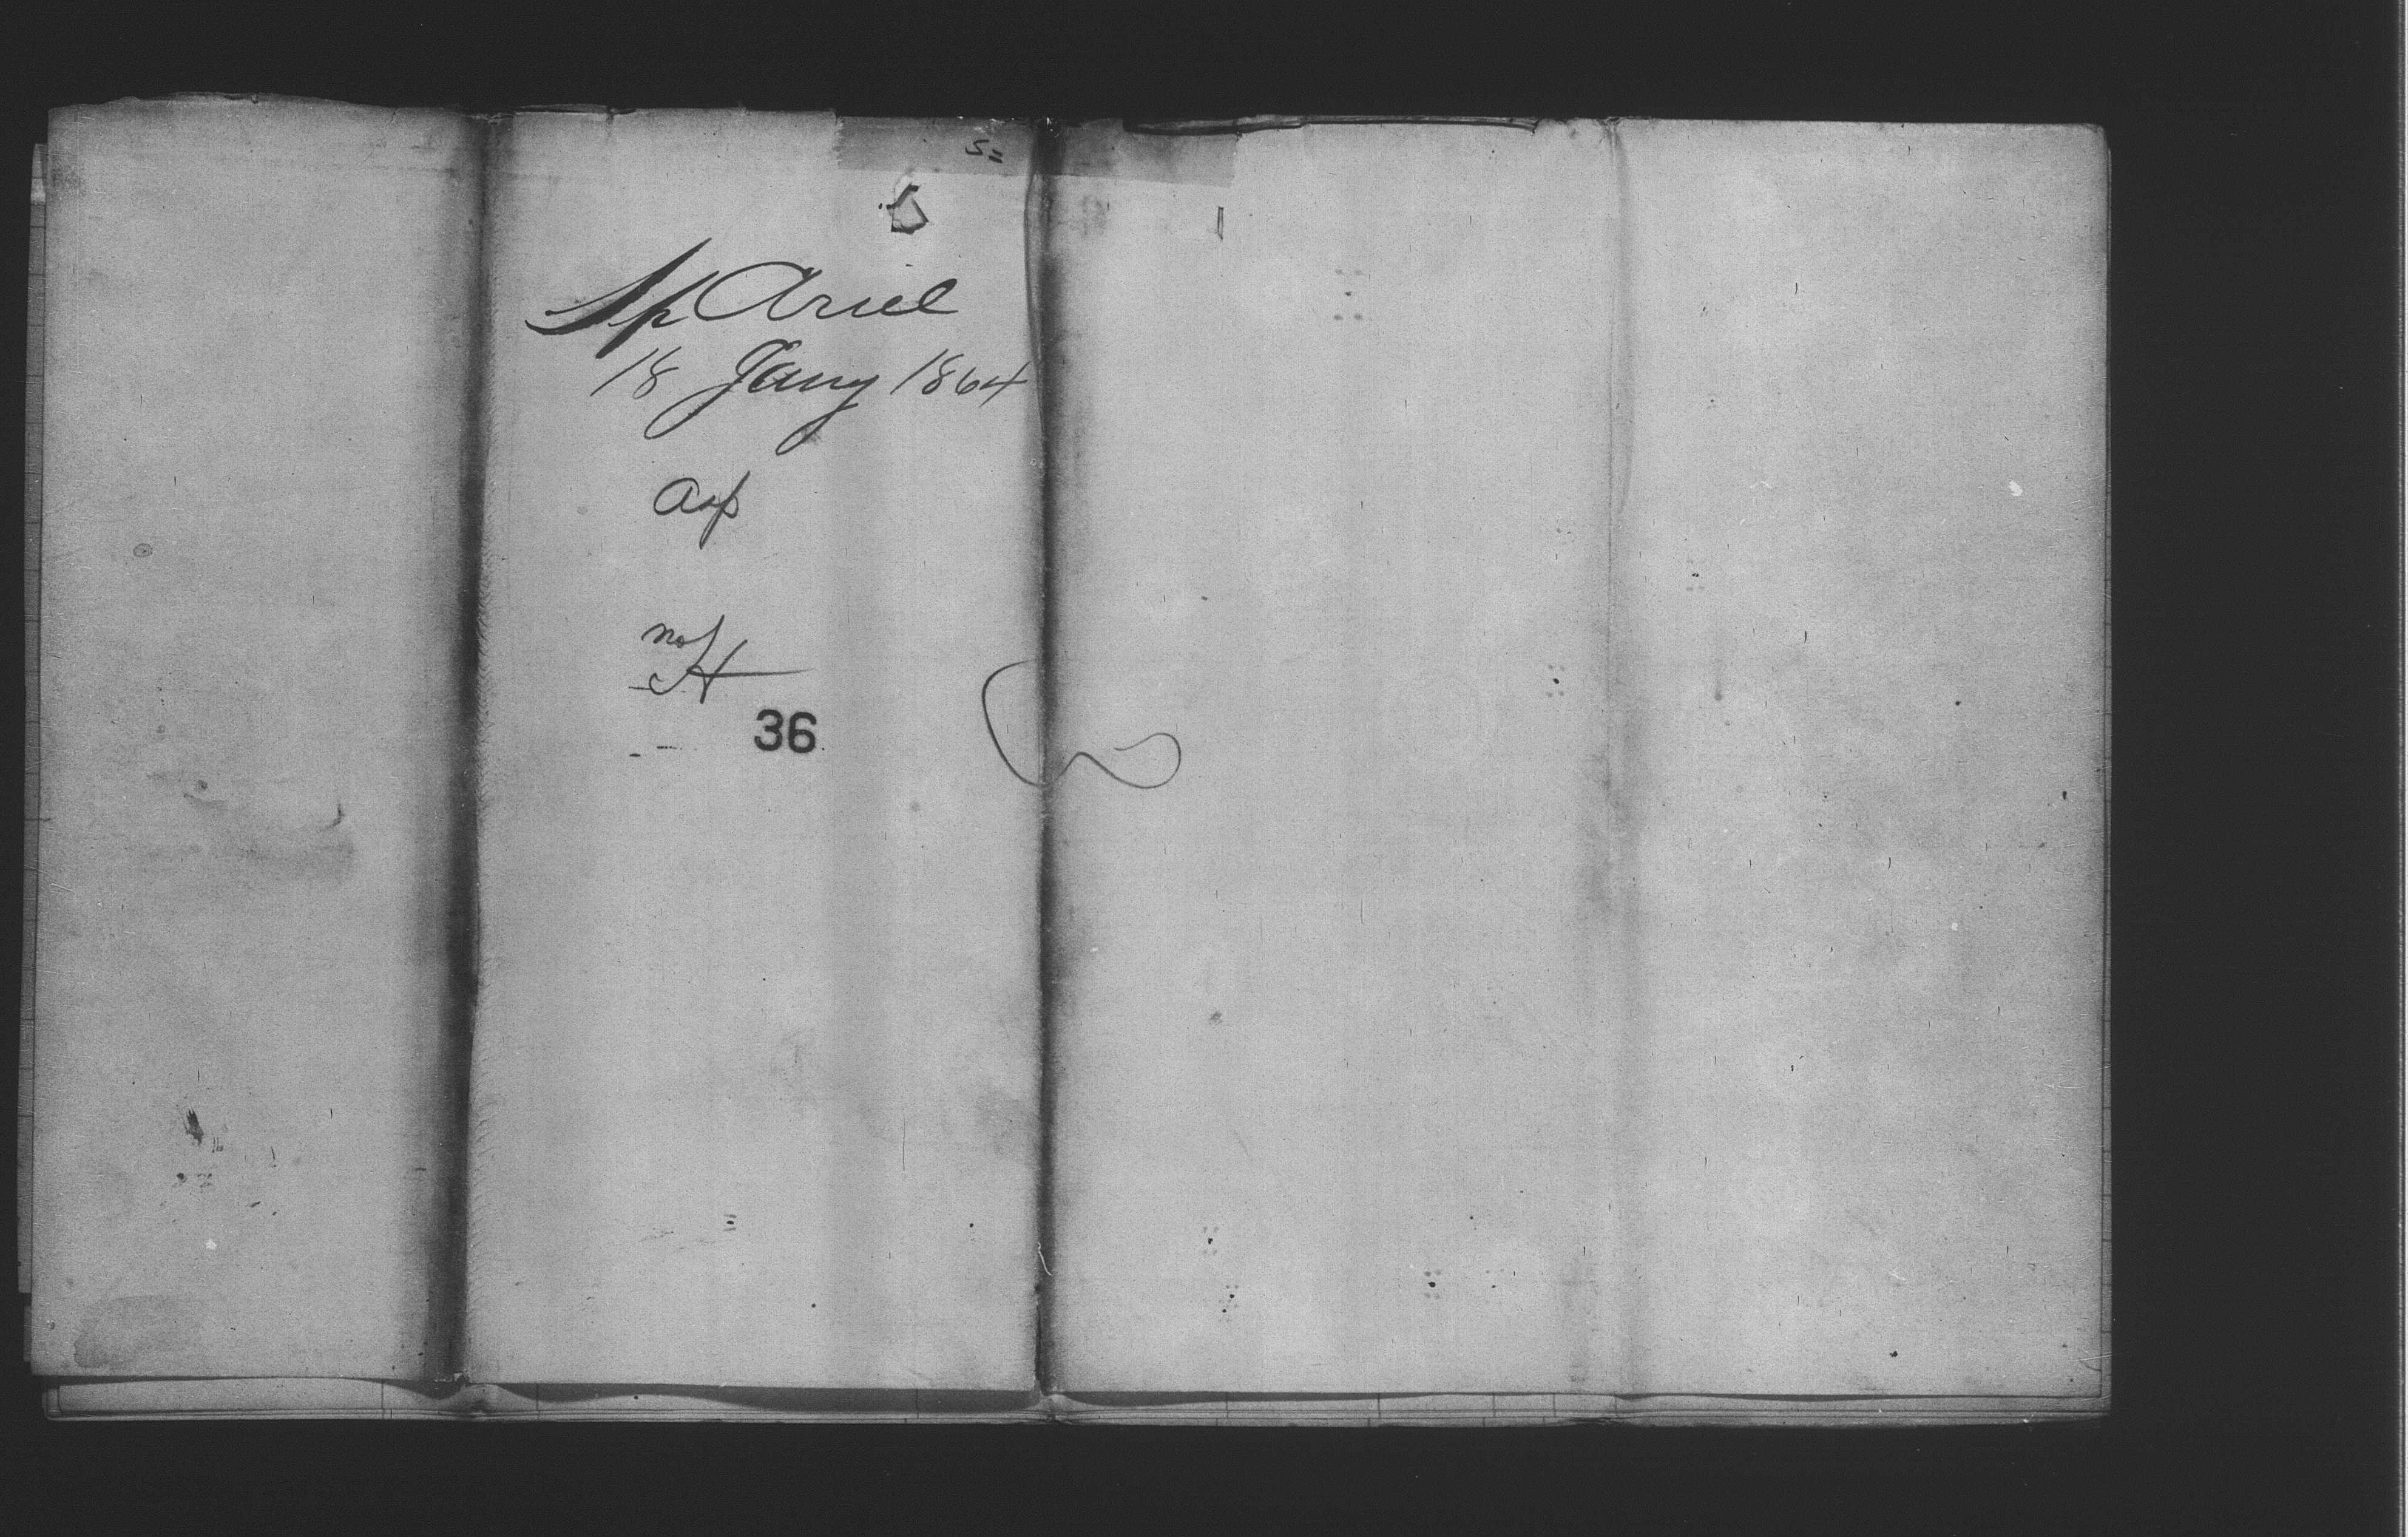 Sp Ariel
18 Jany 1864
asp
No
H
36